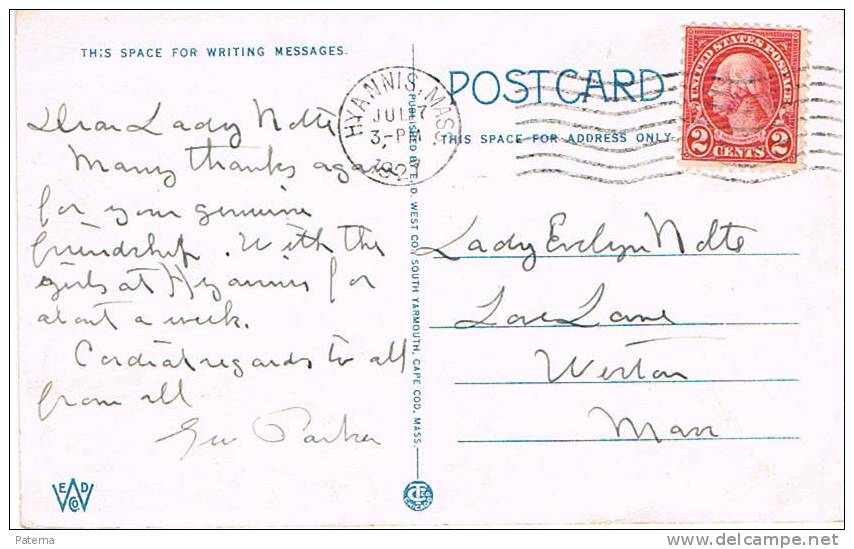 THIS SPACE FOR WRITING MESSAGES.
POST CARD
THIS SPACE FOR ADDRESS ONLY
HYANNIS, MASS.
JUL 7
3-PM
1927
UNITED STATES POSTAGE
2 CENTS 2
Dear Lady Nolte
Many thanks again
for your genuine
friendship. With the
girls at Hyannis for
about a week.
Cordial regards to all
from all
Geo Parker
PUBLISHED BY E. D. WEST CO., SOUTH YARMOUTH, CAPE COD, MASS.
Lady Evelyn Nolte
Love Lane
Weston
Mass
E D
W Co
Paterna
www.delcampe.net